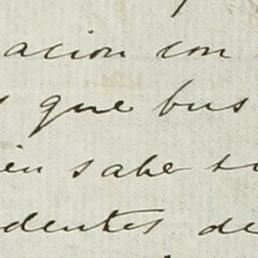 acion con
que bus
én sabe si
dentes de